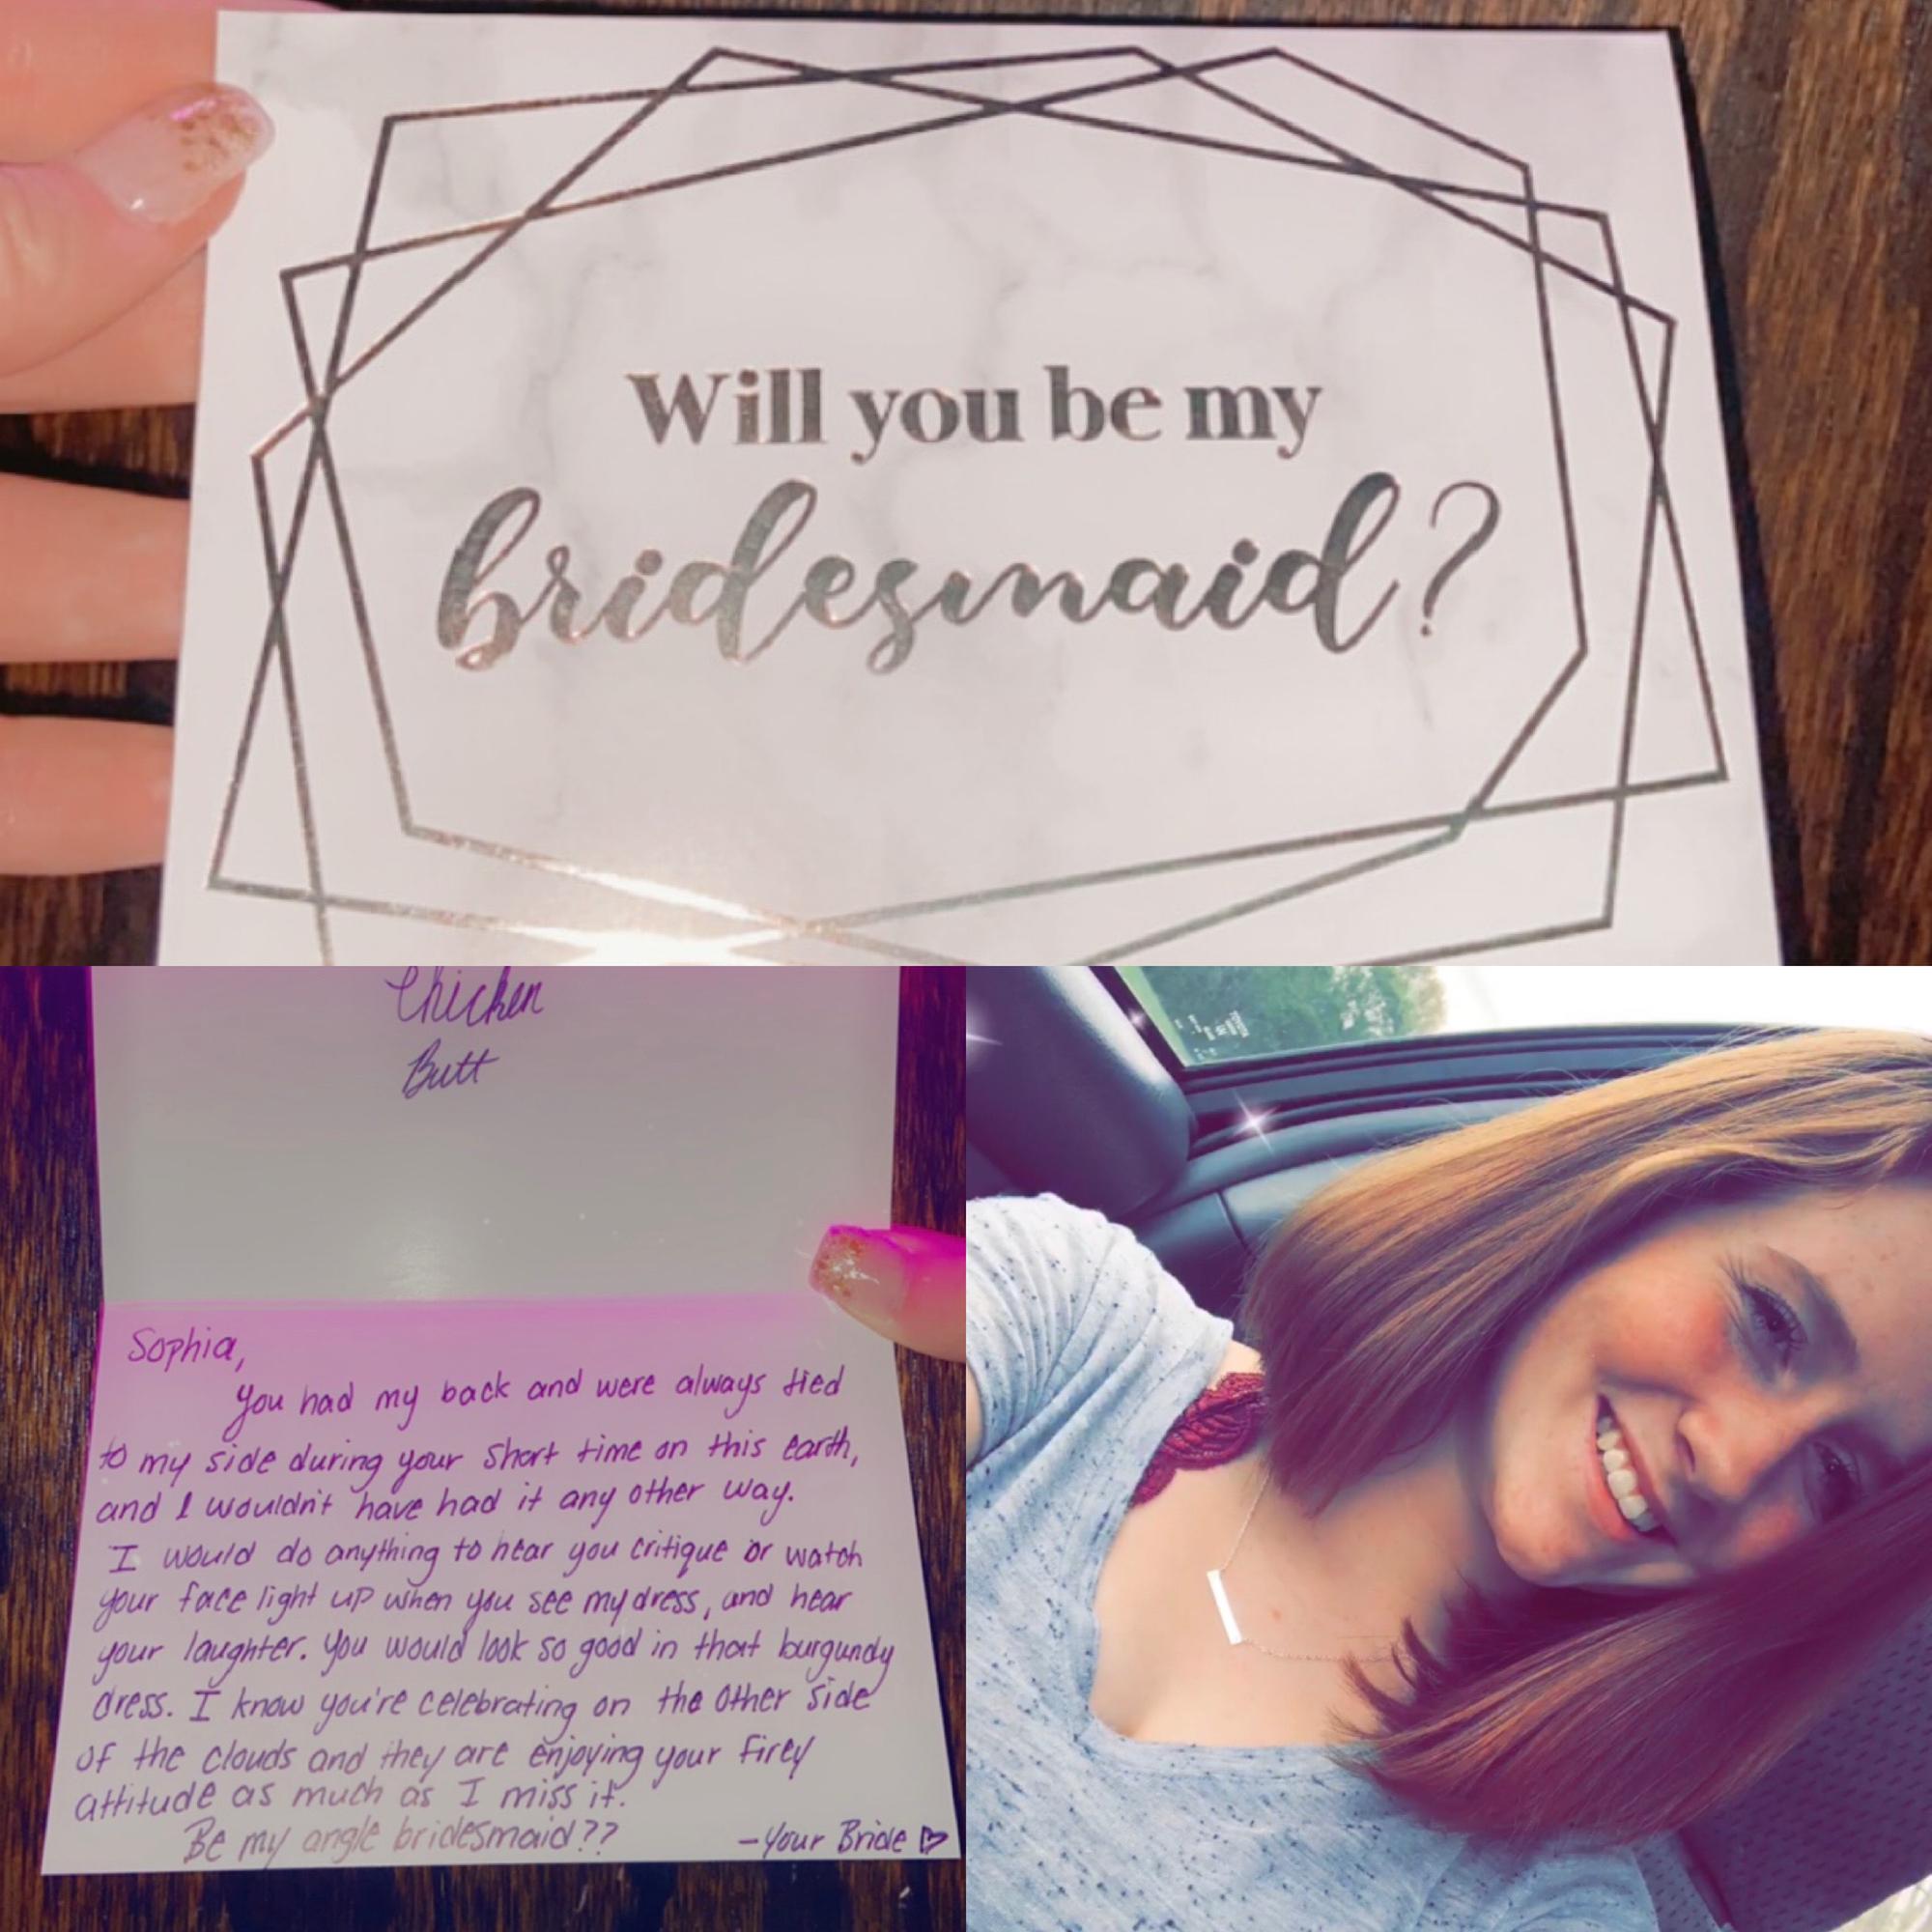 Will you be my
bridesmaid?
Chicken
Butt
Sophia,
You had my back and were always tied
to my side during your short time on this earth,
and I wouldn't have had it any other way.
I would do anything to hear you critique or watch
your face light up when you see my dress, and hear
your laughter. You would look so good in that burgundy
dress. I know you're celebrating on the other side
of the clouds and they are enjoying your firey
attitude as much as I miss it.
Be my angle bridesmaid??
-Your Bride ♡